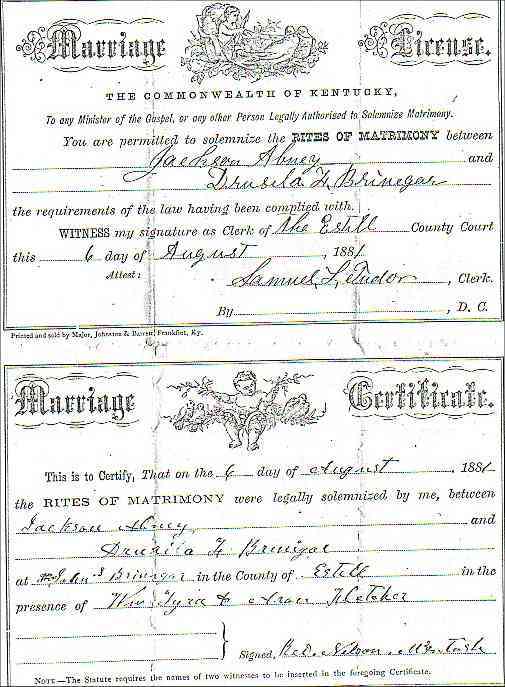 Marriage License.
THE COMMONWEALTH OF KENTUCKY,
To any Minister of the Gospel, or any other Person Legally Authorised to Solemnize Matrimony.
You are permitted to solemnize the RITES OF MATRIMONY between
Jackson Abney and
Drusila F. Brinegar
the requirements of the law having been complied with.
WITNESS my signature as Clerk of the Estill County Court
this 6 day of August, 1881
Attest: Samuel L. Tudor, Clerk.
By , D. C.
Printed and sold by Major, Johnston & Barrett, Frankfort, Ky.
Marriage Certificate.
This is to Certify, That on the 6 day of August, 1881
the RITES OF MATRIMONY were legally solemnized by me, between
Jackson Abney and
Drusila F Brinegar
at John S Brinegar in the County of Estill in the
presence of Wm & Fletcher
Signed,
NOTE.—The Statute requires the names of two witnesses to be inserted in the foregoing Certificate.